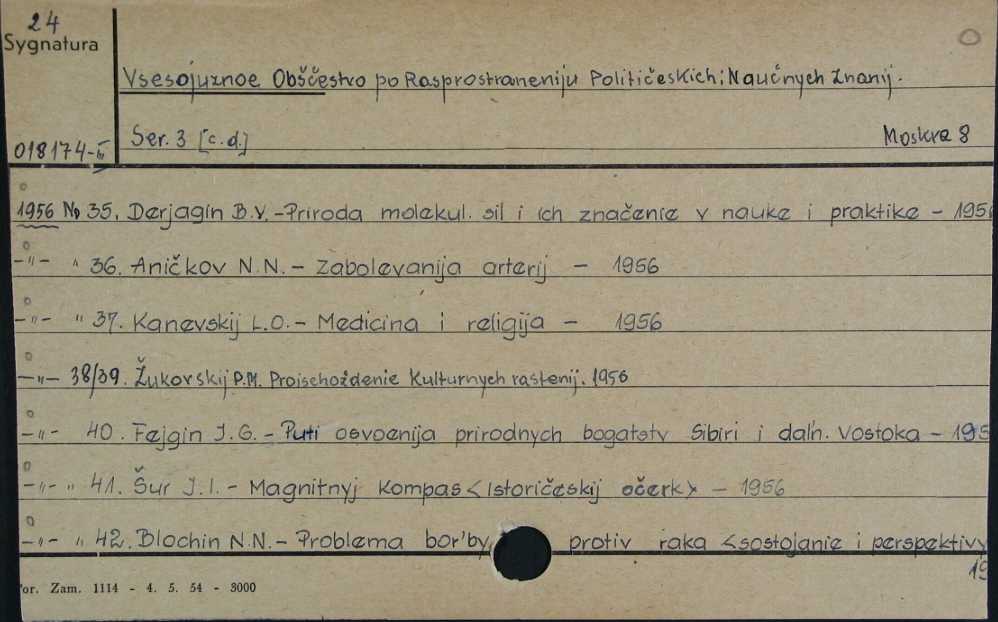 24
Sygnatura
Vsesojuznoe Obščestvo po Rasprostraneniju Političeskich i Naučnych Znanij.
018174-II Ser. 3 [c.d.] Moskva 8
1956 № 35. Derjagin B.V. - Priroda molekul. sil i ich značenie v nauke i praktike - 1956
-"- " 36. Aničkov N.N. - Zabolevanija arterij - 1956
-"- " 37. Kanevskij L.O. - Medicina i religija - 1956
-"- 38/39. Žukovskij P.M. Proischoždenie Kulturnych rastenij. 1956
-"- 40. Fejgin J.G. - Puti osvoenija prirodnych bogatstv Sibiri i dal'n. Vostoka - 195
-"- " 41. Šur J.I. - Magnitnyj Kompas <Istoričeskij očerk> - 1956
-"- " 42. Blochin N.N. - Problema bor'by protiv raka <sostojanie i perspektivy
19
or. Zam. 1114 - 4. 5. 54 - 3000